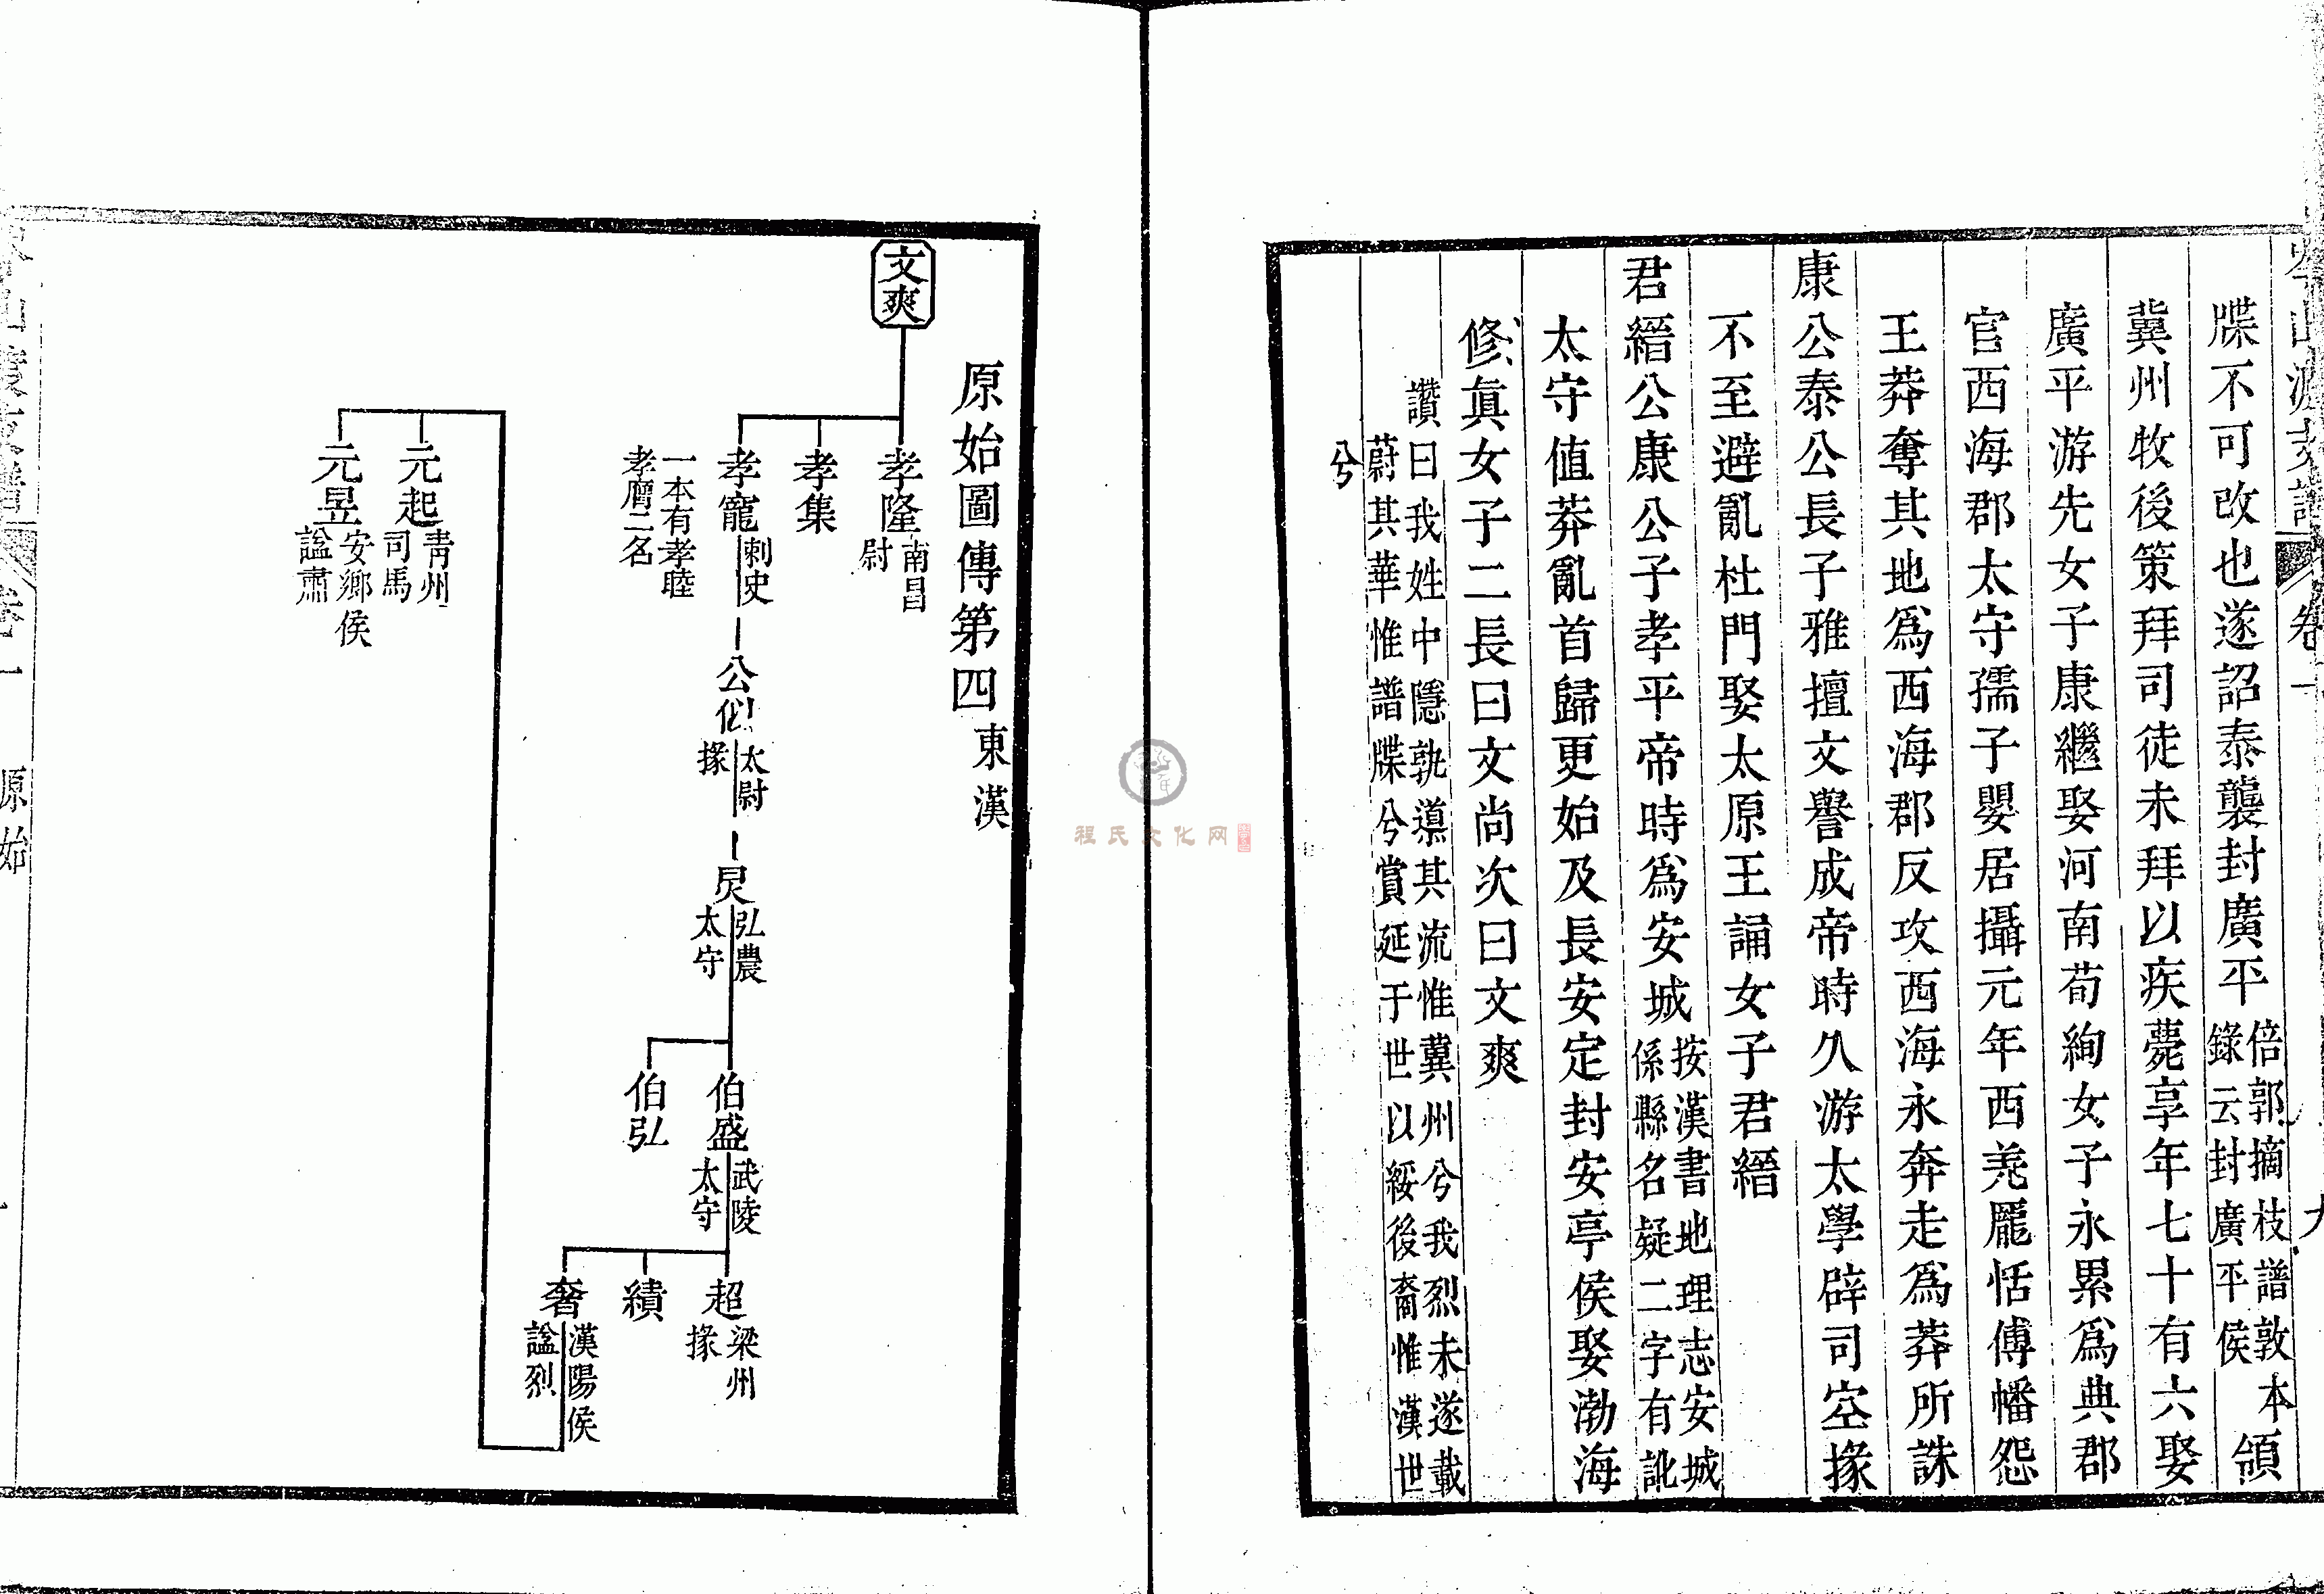 卷一
牒不可改也遂詔泰襲封廣平
倍郭摘枝譜敦本
錄云封廣平侯
領
冀州牧後策拜司徒未拜以疾薨享年七十有六娶
廣平游先女子康繼娶河南荀絢女子永累爲典郡
官西海郡太守孺子嬰居攝元年西羌龎恬傅幡怨
王莽奪其地爲西海郡反攻西海永奔走爲莽所誅
康公泰公長子雅擅文譽成帝時久游太學辟司空掾
不至避亂杜門娶太原王誦女子君縉
君縉公康公子孝平帝時爲安城
按漢書地理志安城
係縣名疑二字有訛
太守值莽亂首歸更始及長安定封安亭侯娶渤海
修眞女子二長曰文尚次曰文爽
讚曰我姓中隱孰導其流惟冀州兮我烈未遂載
蔚其華惟譜牒兮賞延于世以綏後裔惟漢世
兮
程氏文化网
原始圖傳第四
東漢
文爽
孝隆
南昌
尉
孝集
孝寵
刺史
一本有孝睦
孝膺二名
公佀
太尉
掾
炅
弘農
太守
伯盛
武陵
太守
伯弘
超
梁州
掾
績
奢
漢陽侯
諡烈
元起
青州
司馬
元昱
安鄉侯
諡肅
卷一
原始